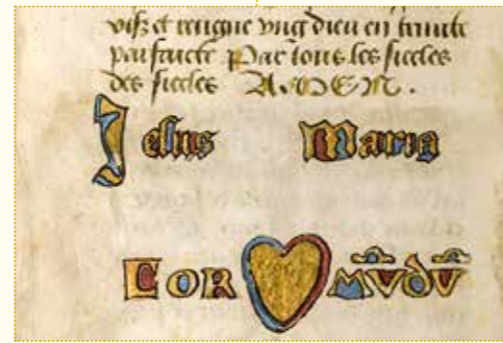 vifz et rengne vng dieu en trinite
parfaicte Par tous les siecles
des siecles AMEN.
Iesus Maria
COR MV̄DV̄